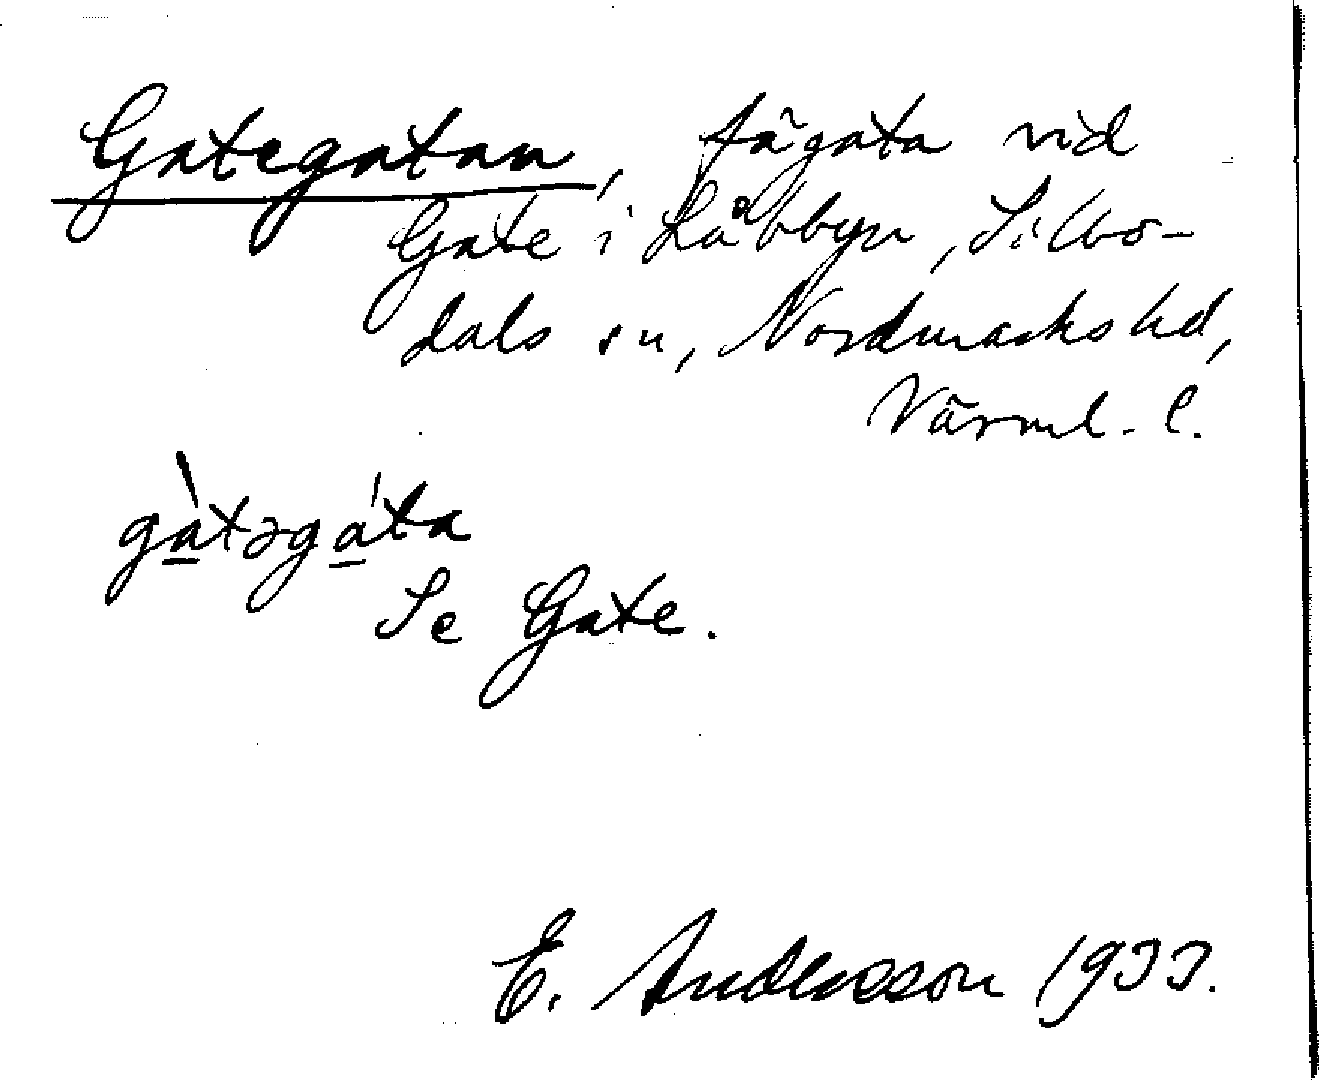 Gategatan, fägata vid
Gate i Låbbyn, Silbo-
dals sn, Nordmarks hd,
Värml. l.
gàtəgáta
Se Gate.
E. Andersson 1933.